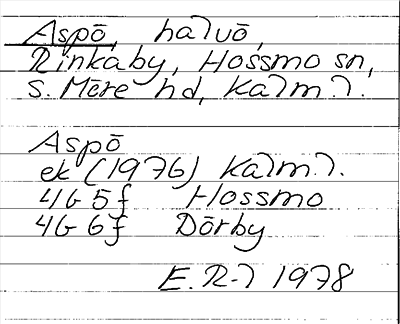 Aspö, halvö,
Rinkaby, Hossmo sn,
S. Möre hd, Kalm. l.
Aspö
ek (1976) Kalm. l.
4G 5f Hossmo
4G 6f Dörby
E. R-l 1978